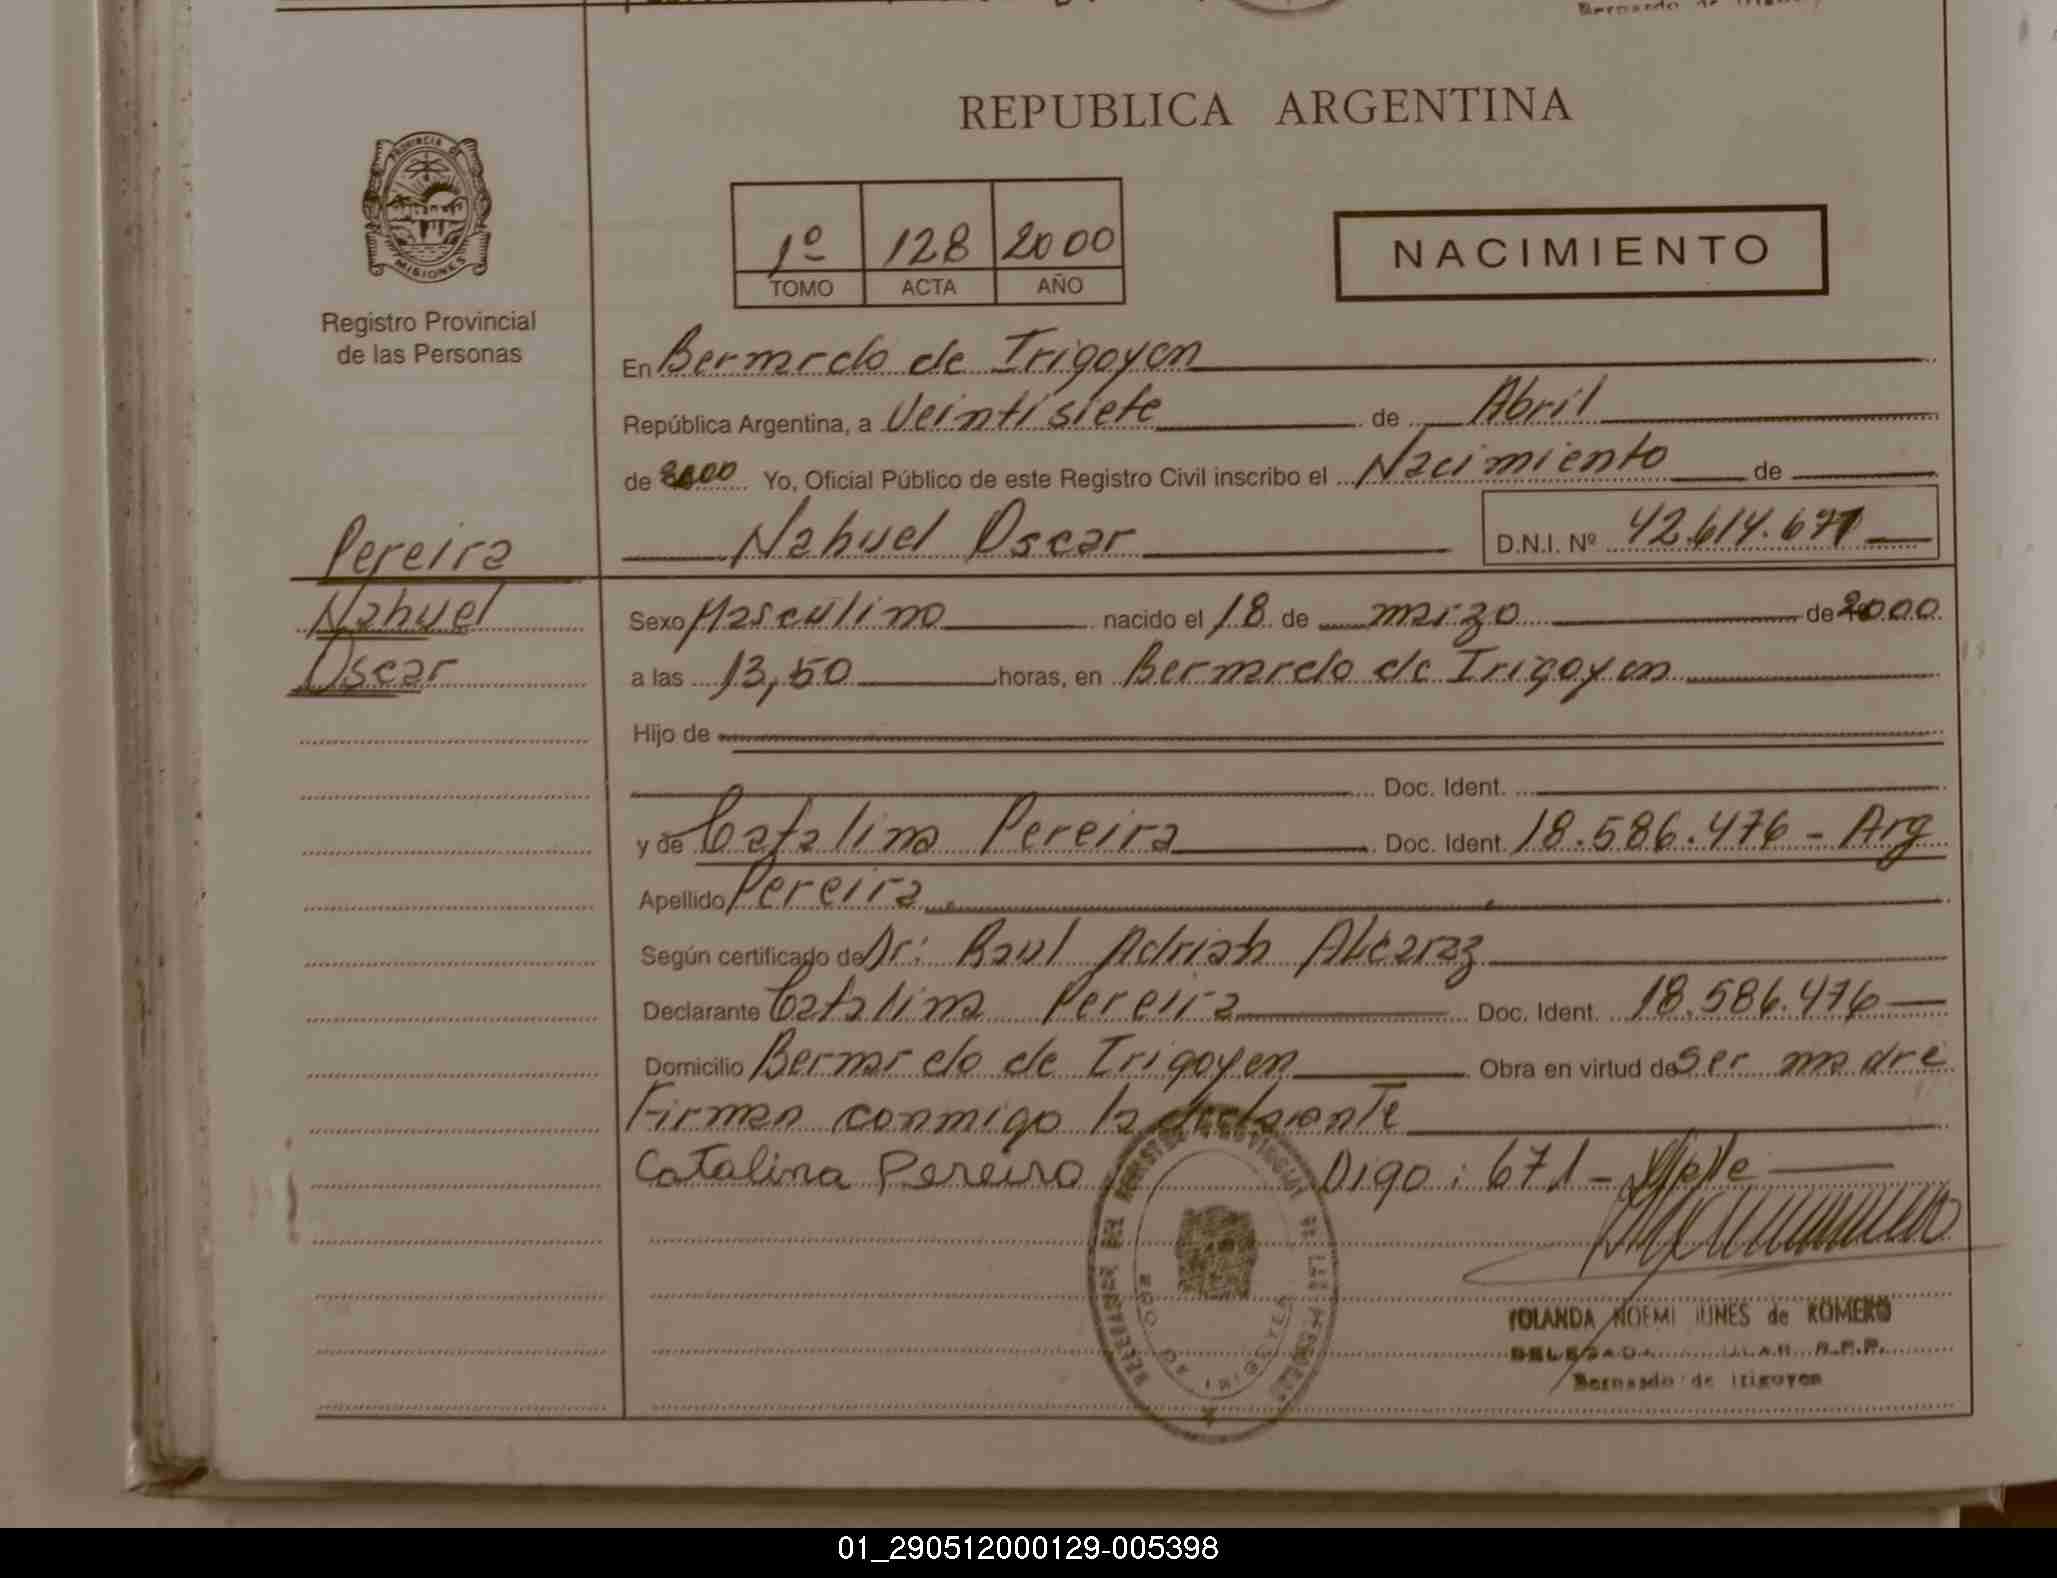 REPUBLICA ARGENTINA
PROVINCIA DE
MISIONES
Registro Provincial
de las Personas
1º 128 2000
TOMO ACTA AÑO
NACIMIENTO
En Bernardo de Irigoyen
República Argentina, a Veintisiete de Abril
de 2000 Yo, Oficial Público de este Registro Civil inscribo el Nacimiento de
Nahuel Oscar D.N.I. Nº 42.614.671
Pereira
Nahuel
Oscar
Sexo Masculino nacido el 18 de marzo de 2000
a las 13,50 horas, en Bernardo de Irigoyen
Hijo de
Doc. Ident.
y de Catalina Pereira Doc. Ident. 18.586.476 - Arg
Apellido Pereira
Según certificado de Dr: Raul Adrian Alcaraz
Declarante Catalina Pereira Doc. Ident. 18.586.476
Domicilio Bernardo de Irigoyen Obra en virtud de ser madre
Firman conmigo la declarante
Catalina Pereira Digo: 671 - Vale
YOLANDA NOEMI de ROMERO
DELEGADA R.P.P.
Bernardo de Irigoyen
01_290512000129-005398